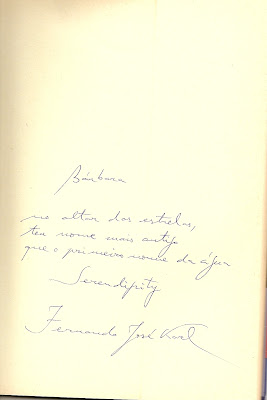 Bárbara
no altar das estrelas,
teu nome mais antigo
que o primeiro nome da água
Serendipity
Fernando José Karl